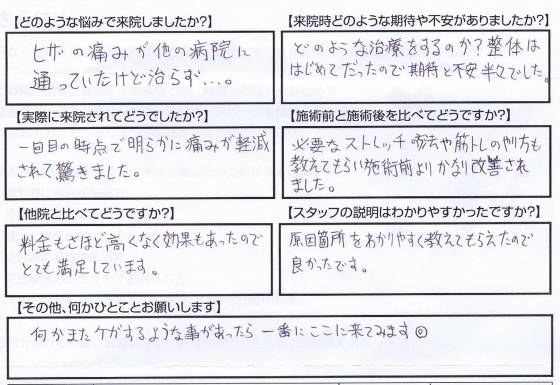 【どのような悩みで来院しましたか?】
ヒザの痛みが他の病院に
通っていたけど治らず…。
【来院時どのような期待や不安がありましたか?】
どのような治療をするのか?整体は
はじめてだったので期待と不安半々でした。
【実際に来院されてどうでしたか?】
一回目の時点で明らかに痛みが軽減
されて驚きました。
【施術前と施術後を比べてどうですか?】
必要なストレッチ方法や筋トレのやり方も
教えてもらい施術前よりかなり改善され
ました。
【他院と比べてどうですか?】
料金もさほど高くなく効果もあったので
とても満足しています。
【スタッフの説明はわかりやすかったですか?】
原因箇所をわかりやすく教えてもらえたので
良かったです。
【その他、何かひとことお願いします】
何かまたケガするような事があったら一番にここに来てみます◎